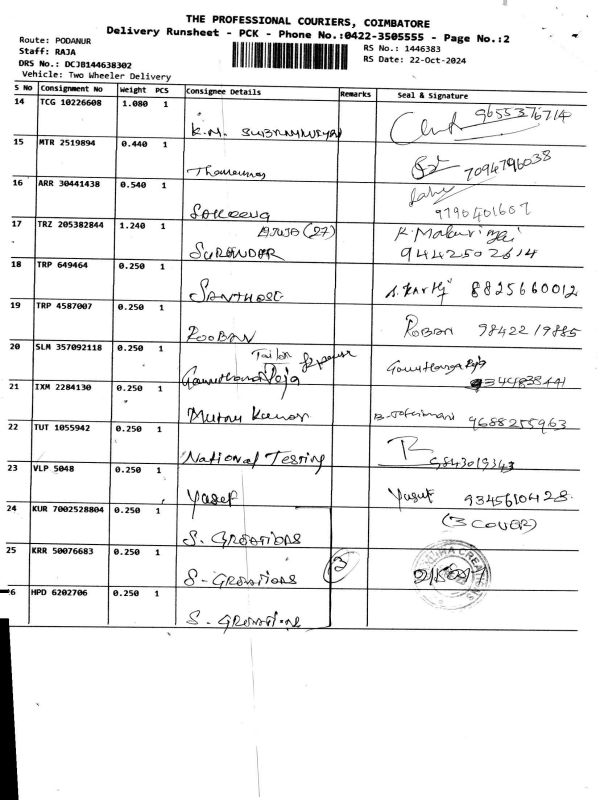 THE PROFESSIONAL COURIERS, COIMBATORE
Delivery Runsheet - PCK - Phone No.:0422-3505555 - Page No.:2
Route: PODANUR
RS No.: 1446383
Staff: RAJA
RS Date: 22-Oct-2024
DRS No.: DCJB144638302
Vehicle: Two Wheeler Delivery
S No Consignment No Weight PCS Consignee Details Remarks Seal & Signature
14 TCG 10226608 1.080 1
9655376714
K.M.
15 MTR 2519894 0.440 1
7094796038
16 ARR 30441438 0.540 1
9790401607
SAKEENA
17 TRZ 205382844 1.240 1
(27)
SURENDAR
9442502614
18 TRP 649464 0.250 1
SANTHOSE
8825660012
19 TRP 4587007 0.250 1
ROOBAN
ROBAN 9842219885
20 SLM 357092118 0.250 1
Tailor
9344838441
21 IXM 2284130 0.250 1
Muthu Kumar
9688255963
22 TUT 1055942 0.250 1
National Testing
9843019343
23 VLP 5048 0.250 1
Yusef
Yusuf 9345610428
24 KUR 7002528804 0.250 1
(3 COVER)
S. CREATIONS
25 KRR 50076683 0.250 1
S-CREATIONS
3
6 HPD 6202706 0.250 1
S. CREATIONS